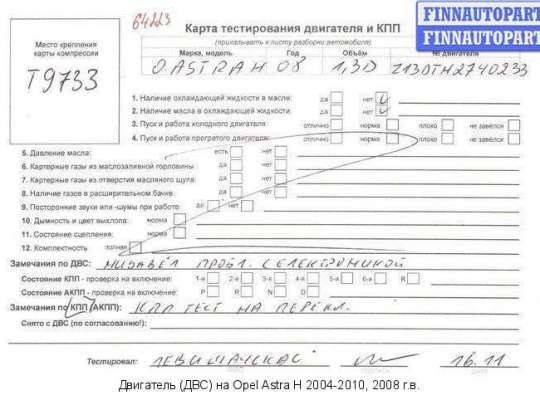 64223
FINNAUTOPART
FINNAUTOPART
Карта тестирования двигателя и КПП
(прикалывать к листу разборки автомобиля)
Место крепления карты компрессии
T9733
Марка, модель Год Объём № двигателя
O ASTRA H 08 1,3D Z13DTH2740233
1. Наличие охлаждающей жидкости в масле: да нет
2. Наличие масла в охлаждающей жидкости: да нет
3. Пуск и работа холодного двигателя: отлично норма плохо не завёлся
4. Пуск и работа прогретого двигателя: отлично норма плохо не завёлся
5. Давление масла: есть нет
6. Картерные газы из маслозаливной горловины да нет
7. Картерные газы из отверстия масляного щупа: да нет
8. Наличие газов в расширительном бачке: да нет
9. Посторонние звуки или -шумы при работе: да нет
10. Дымность и цвет выхлопа: норма
11. Состояние сцепления: норма
12. Комплектность полная
Замечания по ДВС: НИЗАВЁЛ ПРОБЛ. С ЕЛЕКТРОНИКОЙ
Состояние КПП - проверка на включение: 1-я 2-я 3-я 4-я 5-я 6-я R
Состояние АКПП - проверка на включение: P R N D
Замечания по КПП (АКПП): КПП ТЕСТ НА ПЕРЕКЛ.
Снято с ДВС (по согласованию!):
Тестировал: 16.11
Двигатель (ДВС) на Opel Astra H 2004-2010, 2008 г.в.